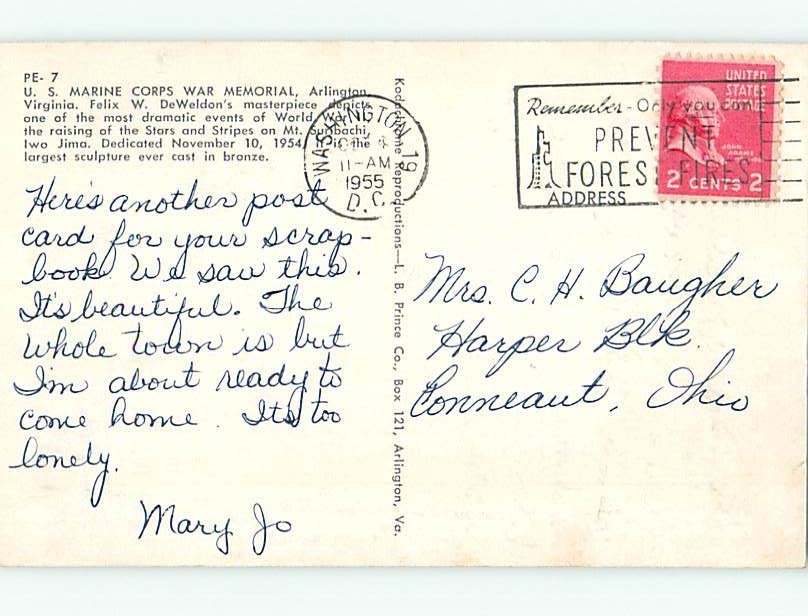 PE- 7
U. S. MARINE CORPS WAR MEMORIAL, Arlington,
Virginia. Felix W. DeWeldon's masterpiece depicts
one of the most dramatic events of World War
the raising of the Stars and Stripes on Mt. Suribachi,
Iwo Jima. Dedicated November 10, 1954. It is the
largest sculpture ever cast in bronze.
Here's another post
card for your scrap-
book. We saw this.
It's beautiful. The
whole town is but
I'm about ready to
come home. It's too
lonely.
Mary Jo
Kodachrome Reproductions—L. B. Prince Co., Box 121, Arlington, Va.
WASHINGTON, 19
11-AM
1955
D.C.
Remember - Only you can
PREVENT
FOREST FIRES
UNITED
STATES
JOHN
ADAMS
2 CENTS 2
ADDRESS
Mrs. C. H. Baugher
Harper Blk.
Conneaut, Ohio